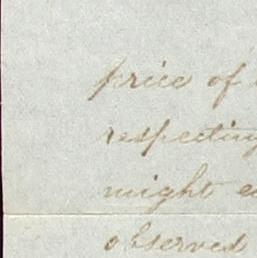 price of
respecting
might
observed